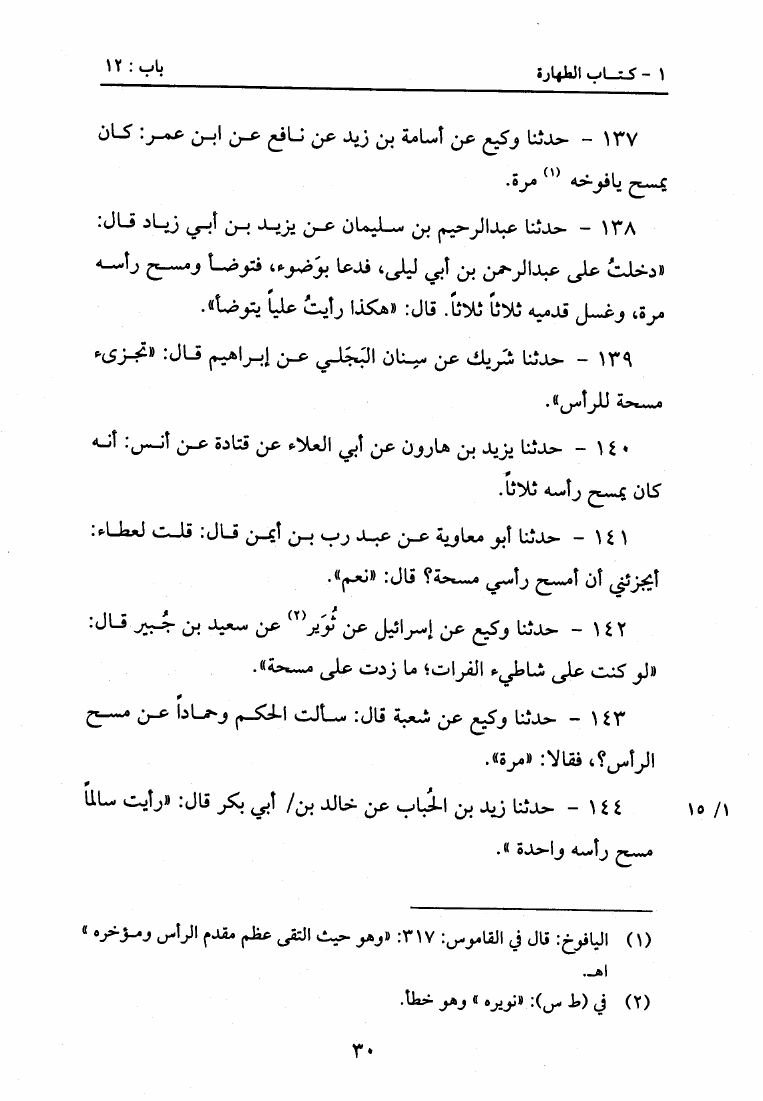 ١ - كتاب الطهارة
باب : ١٢
١٣٧ - حدثنا وكيع عن أسامة بن زيد عن نافع عن ابن عمر: كان
يمسح يافوخه (١) مرة.
١٣٨ - حدثنا عبدالرحيم بن سليمان عن يزيد بن أبي زياد قال:
«دخلتُ على عبدالرحمن بن أبي ليلى، فدعا بوَضوء، فتوضأ ومسح رأسه
مرة، وغسل قدميه ثلاثاً ثلاثاً. قال: «هكذا رأيتُ علياً يتوضأ».
١٣٩ - حدثنا شَريك عن سِنان البَجَلي عن إبراهيم قال: «تجزىء
مسحة للرأس».
١٤٠ - حدثنا يزيد بن هارون عن أبي العلاء عن قتادة عن أنس: أنه
كان يمسح رأسه ثلاثاً.
١٤١ - حدثنا أبو معاوية عن عبد رب بن أيمن قال: قلت لعطاء:
أيجزئني أن أمسح رأسي مسحة؟ قال: «نعم».
١٤٢ - حدثنا وكيع عن إسرائيل عن ثُوَير(٢) عن سعيد بن جُبير قال:
«لو كنت على شاطيء الفرات؛ ما زدت على مسحة».
١٤٣ - حدثنا وكيع عن شعبة قال: سألت الحكم وحماداً عن مسح
الرأس؟، فقالا: «مرة».
١٤٤ - حدثنا زيد بن الحُباب عن خالد بن/ أبي بكر قال: «رأيت سالماً
١/ ١٥
مسح رأسه واحدة ».
(١) اليافوخ: قال في القاموس: ٣١٧: «وهو حيث التقى عظم مقدم الرأس ومؤخره »
اهـ.
(٢) في (ط س): «نويره » وهو خطأ.
٣٠